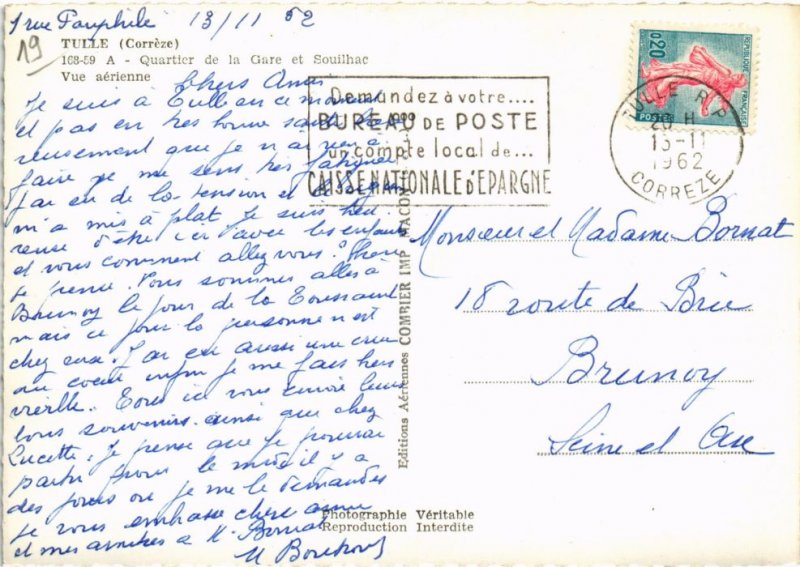 1 rue Pauphile 13/11 62
19
TULLE (Corrèze)
168-59 A - Quartier de la Gare et Souilhac
Vue aérienne
Chers Amis
Je suis à Tulle en ce moment
et pas en très bonne santé
reusement que je n'ai rien à
faire je me sens très fatiguée
J'ai eu de la tension et
m'a mis à plat. Je suis heu
reuse d'être ici avec les enfants
et vous comment allez vous?
je pense. Nous sommes allés à
Brunoy le jour de la Toussaint
mais ce jour là personne n'est
chez eux. J'ai eu aussi une crise
au coeur enfin je me fais bien
vieille. Tous ici vous envoie leurs
bons souvenirs ainsi que chez
Lucette. Je pense que je pourrai
partir pour le midi il y a
des jours où je me le demande
je vous embrasse chère amie
et mes amitiés à M. Bornat
Demandez à votre....
BUREAU DE POSTE
un compte local de...
CAISSE NATIONALE D'EPARGNE
0,20
REPUBLIQUE FRANÇAISE
POSTES
TULLE R.P.
20 H
13-11
1962
CORREZE
Monsieur et Madame Bornat
18 route de Brie
Brunoy
Seine et Oise
Editions Aériennes COMBIER IMP. MACON
Photographie Véritable
Reproduction Interdite